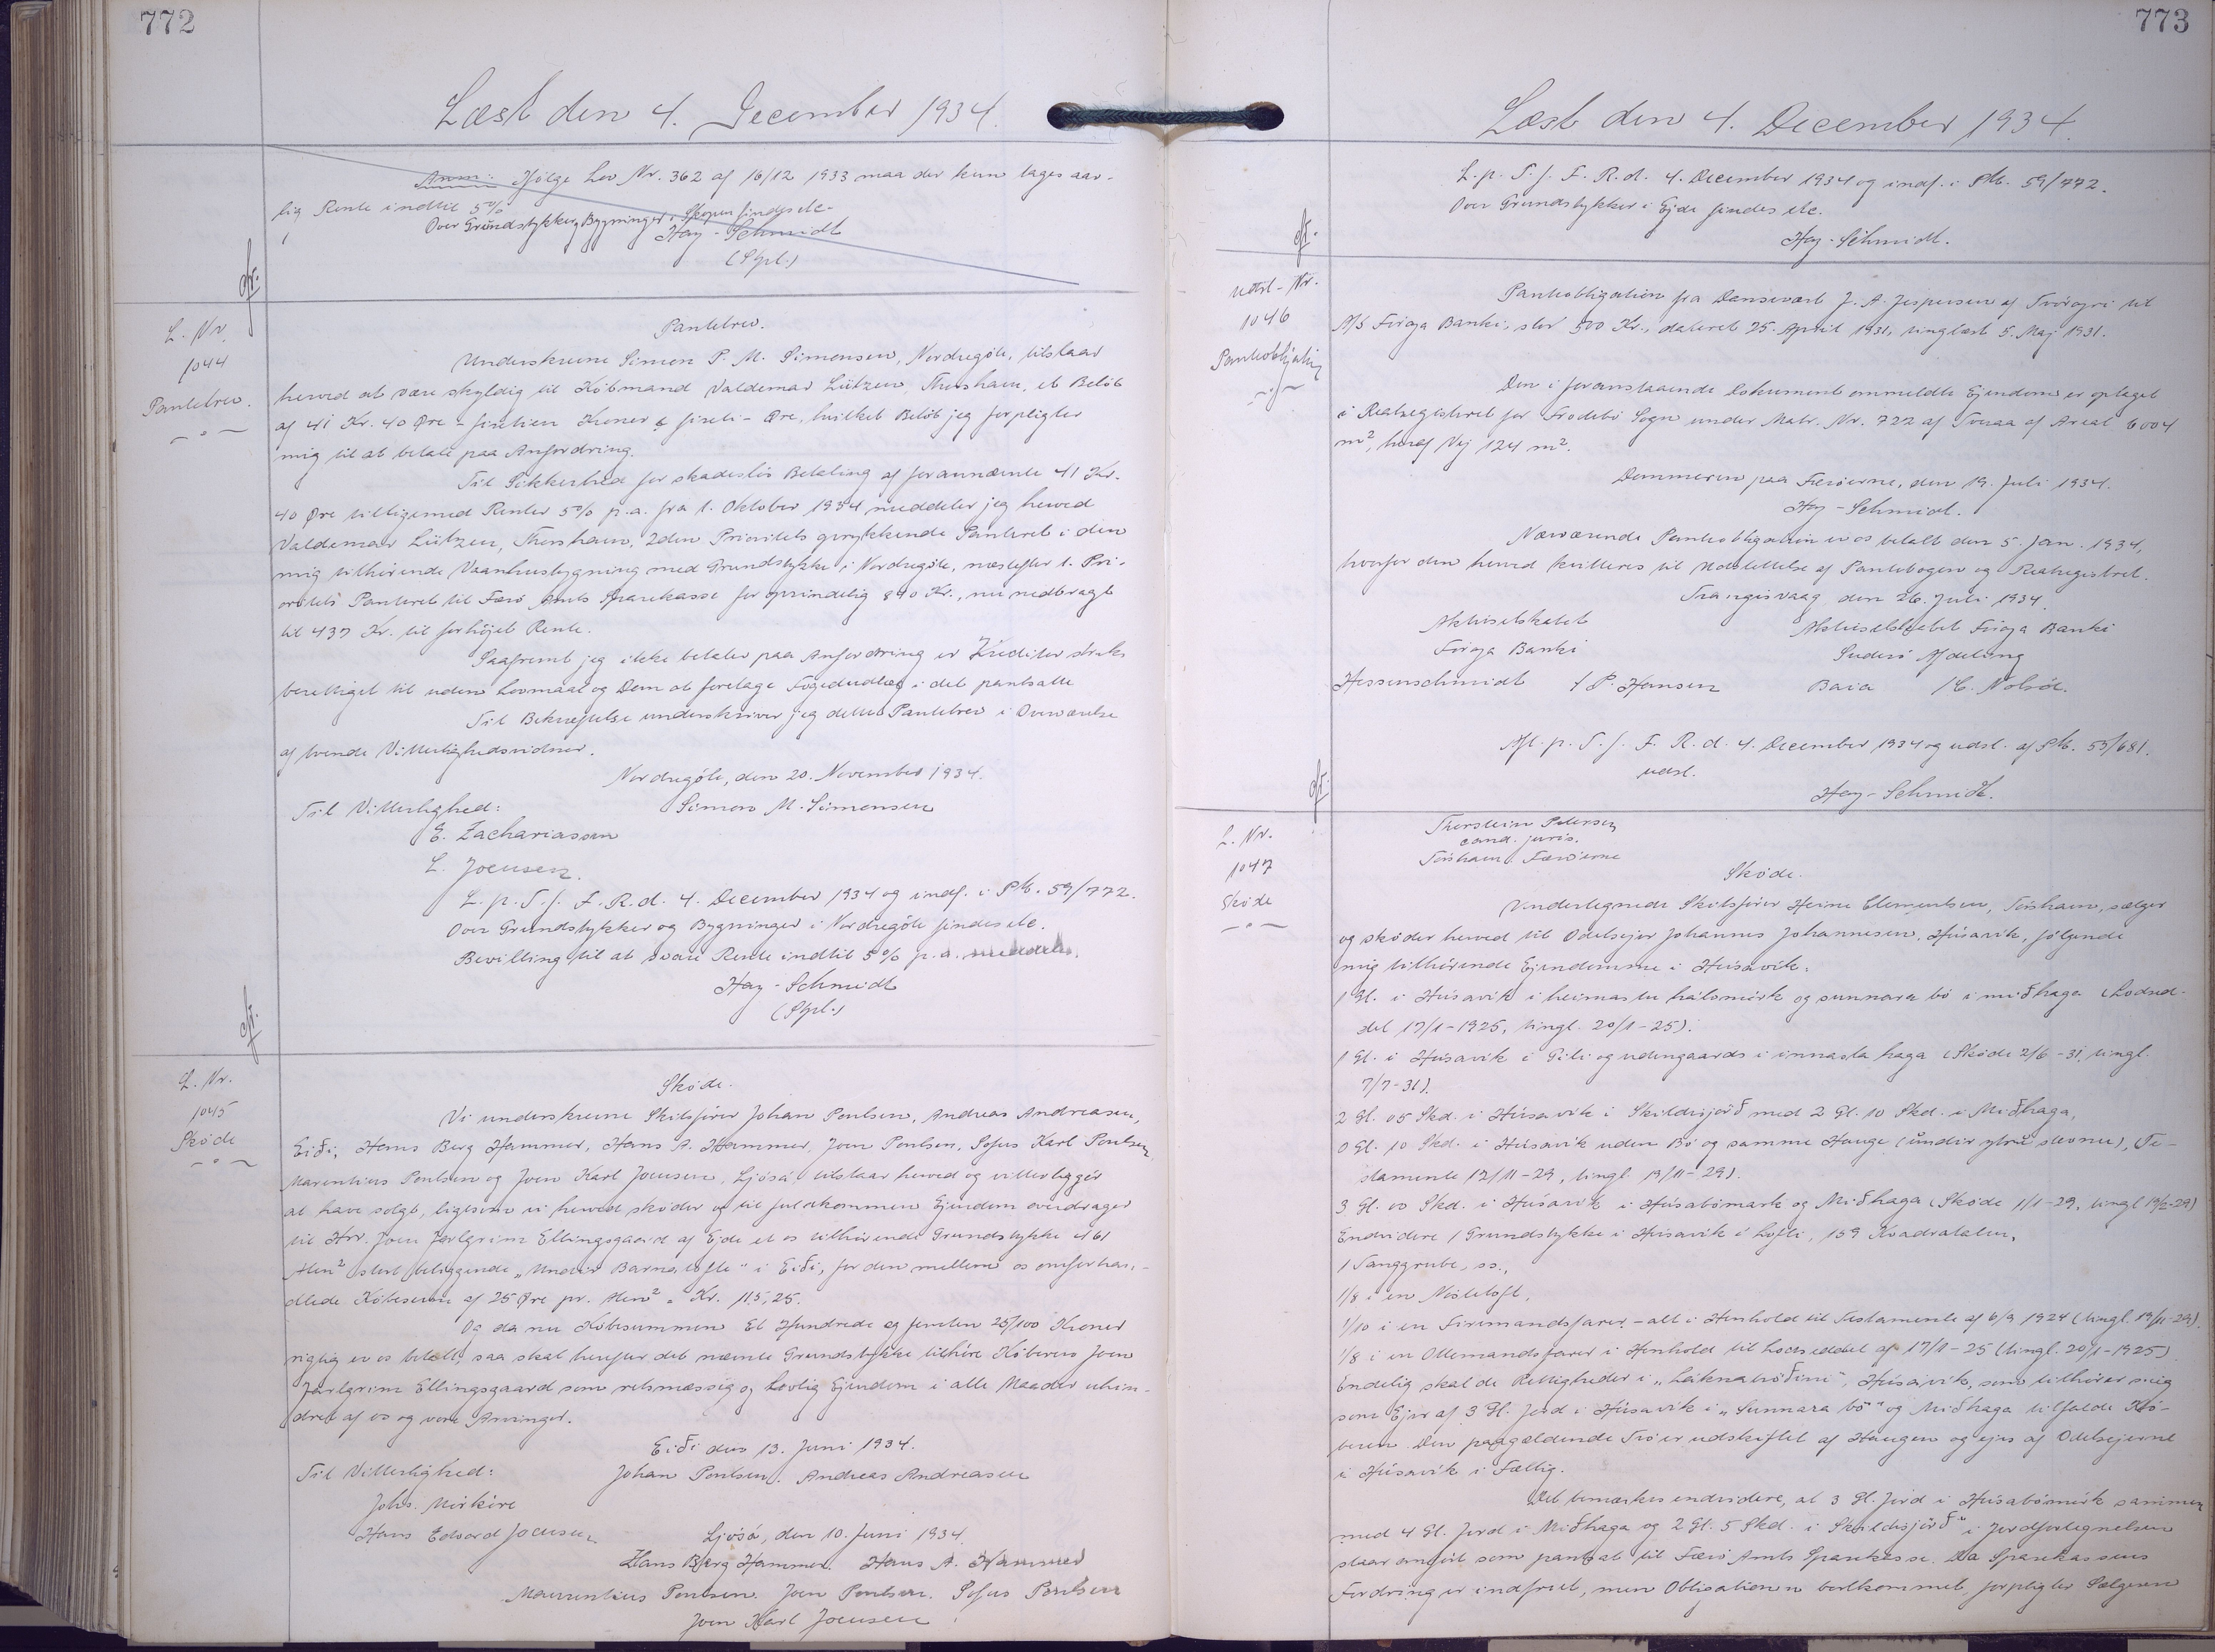 772
Læst den 4. December 1934.
Anm: Ifølge Lov Nr. 362 af 16/12 1933 maa der kun tages aar-
lig Rente indtil 5%
Over Grundstykker, Bygninger i Skopun findes etc.
Hay-Schmidt
(Stpl.)
L. Nr.
1044
Pantebrev.
Pantebrev.
Underskrevne Simon P. M. Simonsen, Nordregöte, tilstaar
herved at være skyldig til Købmand Valdemar Lützen, Thorshavn, et Beløb
af 41 Kr. 40 Øre - firtien Kroner & firti - Øre, hvilket Beløb jeg forpligter
mig til at betale paa Anfordring.
Til Sikkerhed for skadesløs Betaling af forannævnte 41 Kr.
40 Øre tilligemed Renter 5% p.a. fra 1. Oktober 1934 meddeler jeg herved
Valdemar Lützen, Thorshavn, 2den Prioritets oprykkende Panteret i den
mig tilhörende Vaanhusbygning med Grundstykke i Nordregöte, næstefter 1. Pri-
oritets Panteret til Færö Amts Sparekasse for oprindelig 840 Kr., nu nedbragt
til 437 Kr. til forhöjet Rente.
Saafremt jeg ikke betaler paa Anfordring er Kreditor straks
berettiget til uden Lovmaal og Dom at foretage Fogedudlæg i det pantsatte
Til Bekræftelse underskriver jeg dette Pantebrev i Overværelse
af tvende Vitterlighedsvidner.
Nordregöte, den 20. November 1934.
Til Vitterlighed: Simon M. Simonsen
E. Zachariassen
L. Joensen.
L. p. T. f. F. R. d. 4. December 1934 og indf. i S.Pb. 59/772.
Over Grundstykker og Bygninger i Nordregöte findes etc.
Bevilling til at svare Rente indtil 5% p.a. meddeles.
Hay-Schmidt
(Stpl.)
L. Nr.
1045
Sköde
Sköde.
Vi underskrevne Skibsfører Johan Poulsen, Andreas Andreasen,
Eiði, Hans Berg Hammer, Hans A. Hammer, Joen Poulsen, Sofus Karl Poulsen,
Marentius Poulsen og Joen Karl Joensen, Ljósá, tilstaar herved og vitterliggør
at have solgt, ligesom vi herved sköder og til fuldkommen Ejendom overdrager
til Hrr. Joen Jarlgrim Ellingsgaard af Ejde et os tilhörende Grundstykke 461
Alen² stort beliggende „Undir Barnatofte" i Eiði, for den mellem os omforhan-
dlede Købesum af 25 Øre pr. Alen² = Kr. 115,25.
Og da nu Købesummen Et Hundrede og femten 25/100 Kroner
rigtig er os betalt, saa skal herefter det nævnte Grundstykke tilhöre Köberen Joen
Jarlgrim Ellingsgaard som retsmæssig og lovlig Ejendom i alle Maader uhin-
dret af os og vore Arvinger.
Eiði den 13. Juni 1934.
Til Vitterlighed: Johan Poulsen. Andreas Andreasen
Johs. Mörköre
Hans Edvard Joensen Ljósá, den 10. Juni 1934.
Hans Berg Hammer. Hans A. Hammer
Maurentius Poulsen. Joen Poulsen. Sofus Poulsen
Joen Karl Joensen
773
Læst den 4. December 1934.
L. p. T. f. F. R. d. 4. December 1934 og indf. i S.Pb. 59/772.
Over Grundstykker i Ejde findes etc.
Hay-Schmidt.
Udsl-Nr.
1046
Pantobligation
Pantobligation fra Dansevært J. A. Jespersen af Tvöroyri til
A/S Föroya Banki, stor 500 Kr., dateret 25. April 1931, tinglæst 5. Maj 1931.
Den i foranstaaende Dokument ommeldte Ejendom er optaget
i Realregistret for Frodebö Sogn under Matr. Nr. 722 af Tveraa af Areal 6004
m², heraf Vej 124 m².
Dommeren paa Færöerne, den 19. Juli 1934.
Hay-Schmidt.
Nærværende Pantobligation er os betalt den 5. Jan. 1934,
hvorfor den herved kvitteres til Udslettelse af Pantebogen og Realregistret.
Trangisvaag den 26. Juli 1934.
Aktieselskabet Aktieselskabet Föroya Banki
Föroya Banki Suderö Afdeling
Hessenschmidt / P. Hansen Baia / C. Nolsöe.
Afl. p. T. f. F. R. d. 4. December 1934 og udsl. af S.Pb. 53/681.
udsl.
Hay-Schmidt.
L. Nr.
1047
Sköde
Thorstein Petersen
cand. juris.
Tórshavn. Færöerne
Sköde.
Undertegnede Skibsfører Heine Clementsen, Tórshavn, sælger
og sköder herved til Odelsejer Johannes Johannesen, Húsavik, følgende
mig tilhörende Ejendomme i Húsavík:
1 Gl. i Húsavík i heimastu hálvmörk og sunnara bö i miðhaga (Lodsed-
del 17/1-1925, tingl. 20/1-25).
1 Gl. i Húsavík i Gili og udengaards i innasta haga (Sköde 2/6-31, tingl.
7/7-31).
2 Gl. 05 Skd. i Húsavík i Skildisjörð med 2 Gl. 10 Skd. i Miðhaga,
0 Gl. 10 Skd. i Húsavík uden Bö og samme Hauge (undir ytru stevnu), (Te-
stamente 12/11-29, tingl 19/11-29).
3 Gl. 00 Skd. i Húsavík i Húsabömark og Miðhaga (Sköde 1/1-29, tingl 19/2-29)
Endvidere 1 Grundstykke i Húsavík í Lofti, 159 Kvadratalen,
1 Tanggrube, ss.,
1/8 i en Nöstetoft,
1/10 i en Firemandsfarer, - alt i Henhold til Testamente af 6/9 1924 (tingl. 19/11-29).
1/8 i en Ottemandsfarer i Henhold til Lodseddel af 17/1-25 (tingl. 20/1-1925)
Endelig skal de Rettigheder i „Láknatröðini", Húsavík, som tilhörer mig
som Ejer af 3 Gl. Jord i Húsavík i „Sunnara bö" og Miðhaga tilfalde Kö-
beren. Den paagældende Trö er udskiftet af Haugen og ejes af Odelsejerne
i Húsavík i Fællig.
Det bemærkes endvidere, at 3 Gl. Jord i Húsabömörk sammen
med 4 Gl. Jord i Miðhaga og 2 Gl. 5 Skd. i Skildisjörð i Jordfortegnelsen
staar anført som pantsat til Færö Amts Sparekasse. Da Sparekassens
Fordring er indfriet, men Obligationen er bortkommet, forpligter Sælgeren